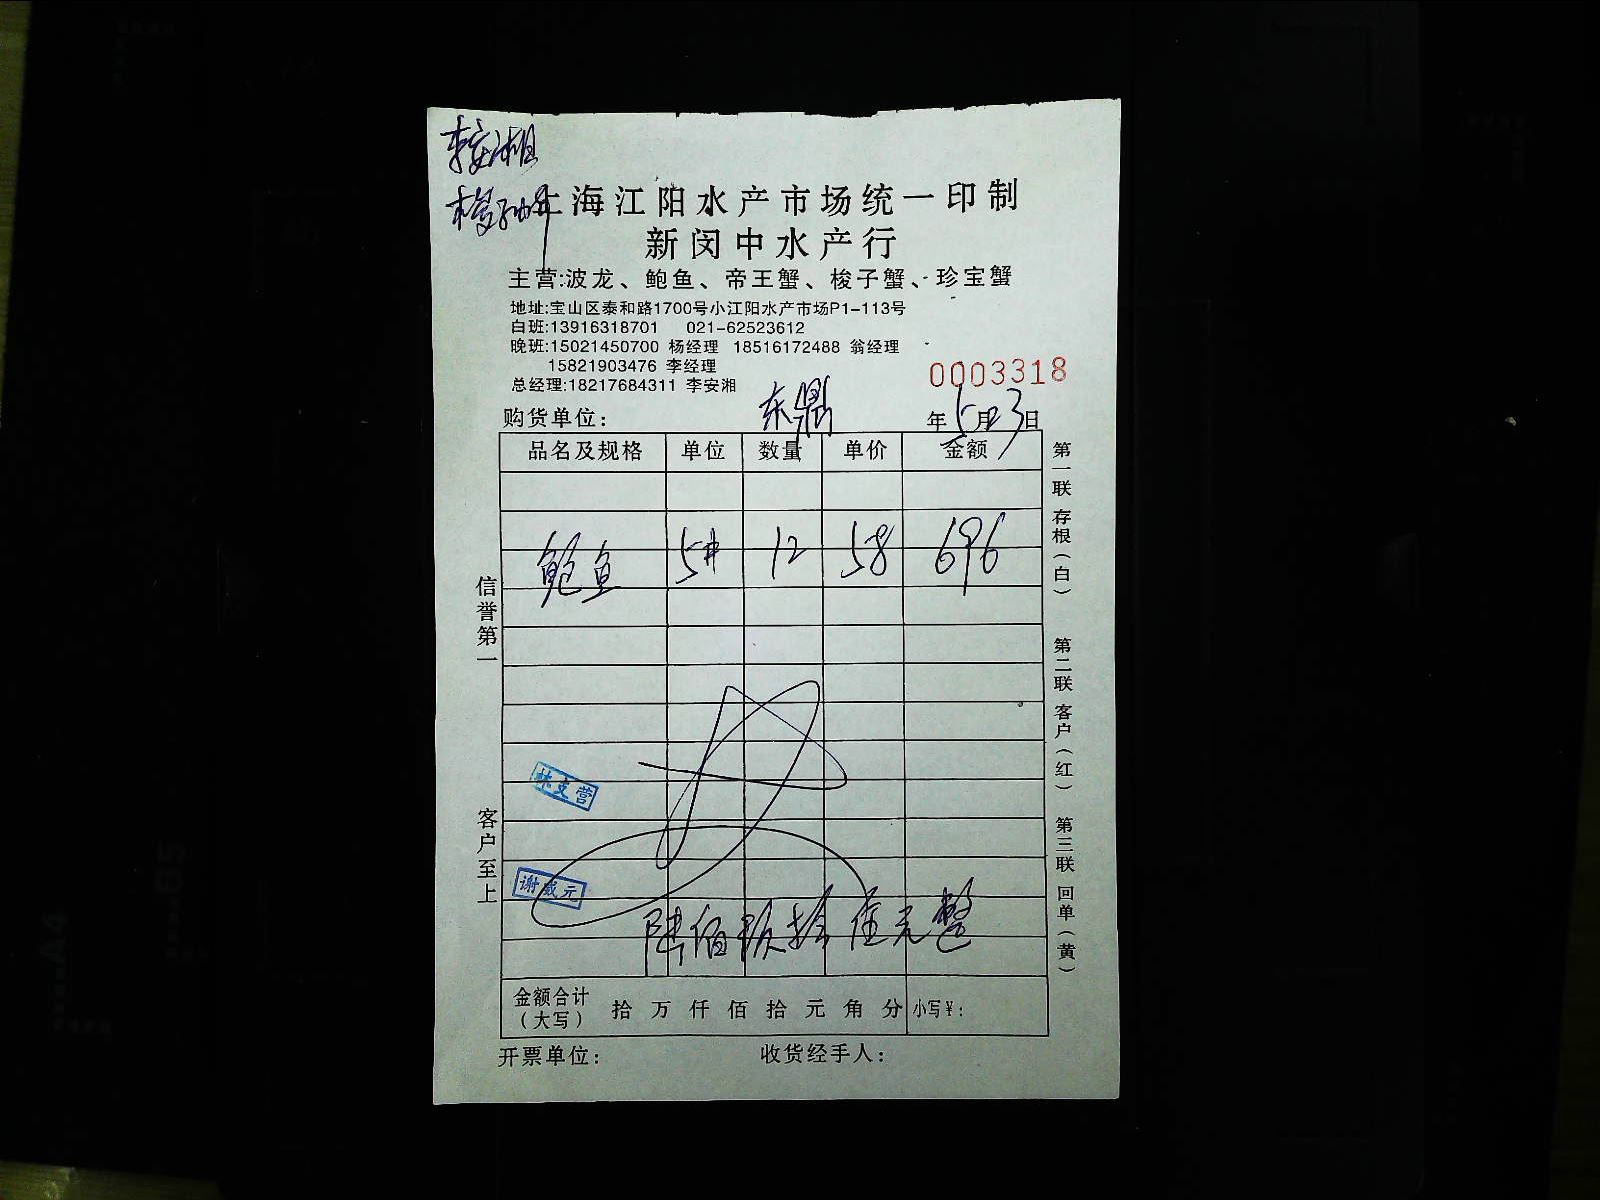 李安湘
梭子蟹
上海江阳水产市场统一印制
新闵中水产行
主营:波龙、鲍鱼、帝王蟹、梭子蟹、珍宝蟹
地址:宝山区泰和路1700号小江阳水产市场P1-113号
白班:13916318701 021-62523612
晚班:15021450700 杨经理 18516172488 翁经理
15821903476 李经理
总经理:18217684311 李安湘
0003318
购货单位: 东鼎 年5月23日
品名及规格 单位 数量 单价 金额
鲍鱼 5# 12 58 696
林支营
谢威元
陆佰玖拾陆元整
金额合计(大写) 拾 万 仟 佰 拾 元 角 分 小写¥:
开票单位: 收货经手人:
信誉第一 客户至上
第一联 存根(白) 第二联 客户(红) 第三联 回单(黄)